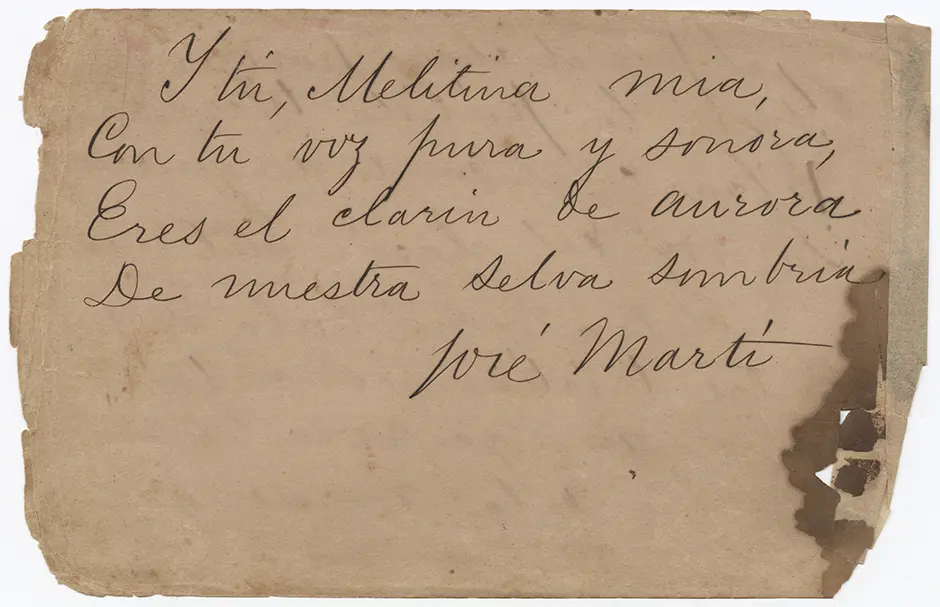 Y tú, Melitina mia,
Con tu voz pura y sonora,
Eres el clarin de aurora
De nuestra selva sombría
José Martí